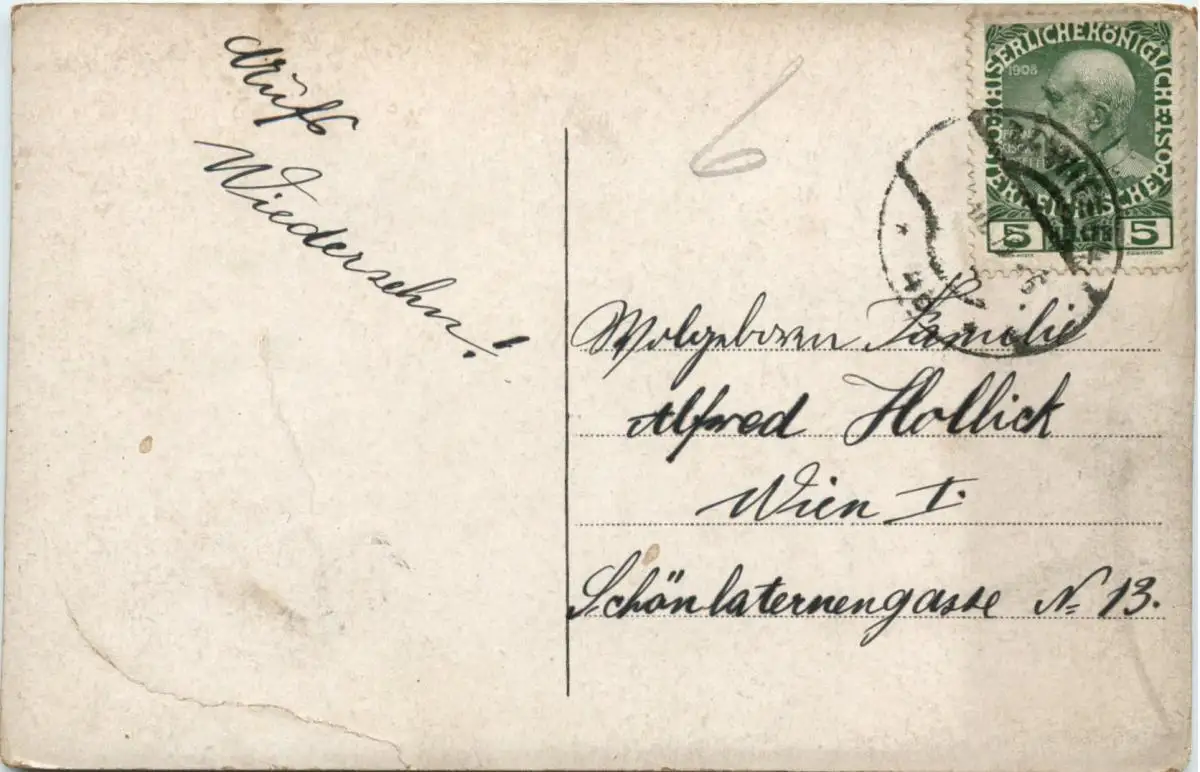 aufs
Wiedersehn!
6
KAISERLICHE KÖNIGLICHE ÖSTERREICHISCHE POST
1908
5 5
Wolgeboren Familie
Alfred Hollick
Wien I.
Schönlaternengasse N= 13.